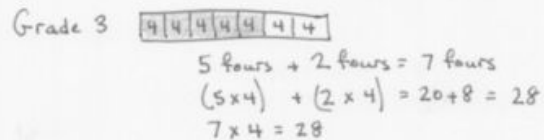 Grade 3 4 4 4 4 4 4 4
5 fours + 2 fours = 7 fours
(5 x 4) + (2 x 4) = 20 + 8 = 28
7 x 4 = 28